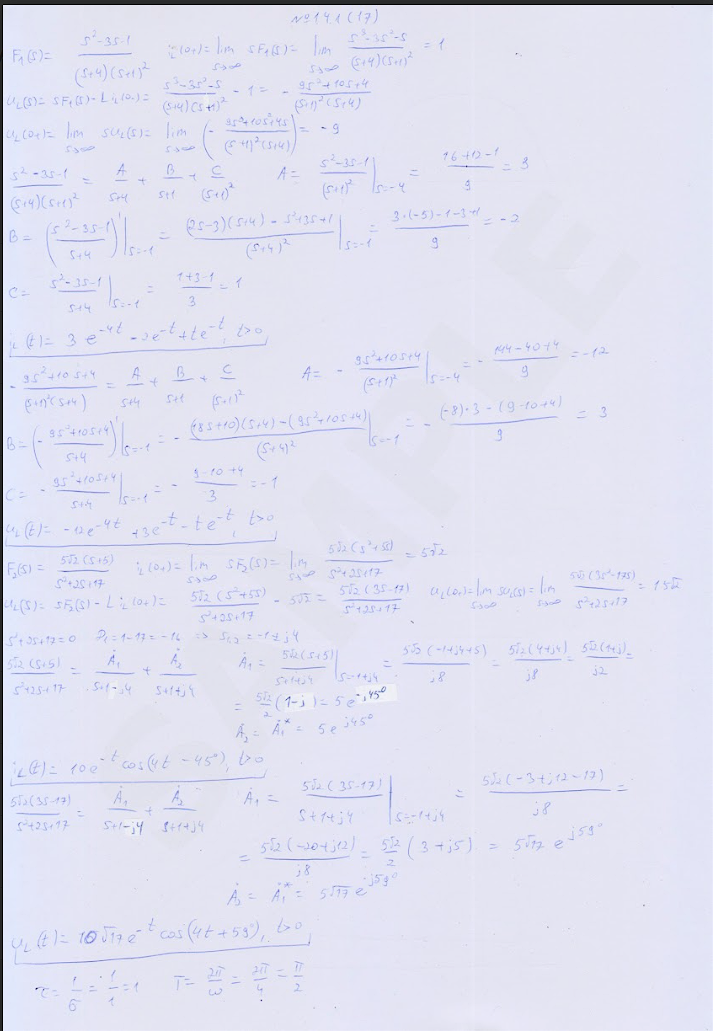 № 14.1 (17)
F₁(s) = (s²-3s-1)/((s+4)(s+1)²) i_L(0+) = lim_{s→∞} sF₁(s) = lim_{s→∞} (s³-3s²-s)/((s+4)(s+1)²) = 1
u_L(s) = sF₁(s) - L i_L(0+) = (s³-3s²-s)/((s+4)(s+1)²) - 1 = - (9s²+10s+4)/((s+1)²(s+4))
u_L(0+) = lim_{s→∞} su_L(s) = lim_{s→∞} (- (9s³+10s²+4s)/((s+1)²(s+4))) = -9
(s²-3s-1)/((s+4)(s+1)²) = A/(s+4) + B/(s+1) + C/(s+1)² A = (s²-3s-1)/(s+1)² |_{s=-4} = (16+12-1)/9 = 3
B = ((s²-3s-1)/(s+4))' |_{s=-1} = ((2s-3)(s+4) - s²+3s+1)/(s+4)² |_{s=-1} = (3·(-5)-1-3+1)/9 = -2
C = (s²-3s-1)/(s+4) |_{s=-1} = (1+3-1)/3 = 1
i_L(t) = 3e^{-4t} - 2e^{-t} + te^{-t}, t>0
- (9s²+10s+4)/((s+1)²(s+4)) = A/(s+4) + B/(s+1) + C/(s+1)² A = - (9s²+10s+4)/(s+1)² |_{s=-4} = - (144-40+4)/9 = -12
B = (- (9s²+10s+4)/(s+4))' |_{s=-1} = - ((18s+10)(s+4) - (9s²+10s+4))/(s+4)² |_{s=-1} = - ((-8)·3 - (9-10+4))/9 = 3
C = - (9s²+10s+4)/(s+4) |_{s=-1} = - (9-10+4)/3 = -1
u_L(t) = -12e^{-4t} + 3e^{-t} - te^{-t}, t>0
F₂(s) = 5√2(s+5)/(s²+2s+17) i_L(0+) = lim_{s→∞} sF₂(s) = lim_{s→∞} 5√2(s²+5s)/(s²+2s+17) = 5√2
u_L(s) = sF₂(s) - L i_L(0+) = 5√2(s²+5s)/(s²+2s+17) - 5√2 = 5√2(3s-17)/(s²+2s+17) u_L(0+) = lim_{s→∞} su_L(s) = lim_{s→∞} 5√2(3s²-17s)/(s²+2s+17) = 15√2
s²+2s+17=0 D₁=1-17=-16 ⇒ s₁,₂=-1±j4
5√2(s+5)/(s²+2s+17) = Ȧ₁/(s+1-j4) + Ȧ₂/(s+1+j4) Ȧ₁ = 5√2(s+5)/(s+1+j4) |_{s=-1+j4} = 5√2(-1+j4+5)/j8 = 5√2(4+j4)/j8 = 5√2(1+j)/j2 =
= 5√2/2 (1-j) = 5e^{-j45°}
Ȧ₂ = Ȧ₁* = 5e^{j45°}
i_L(t) = 10e^{-t} cos(4t - 45°), t>0
5√2(3s-17)/(s²+2s+17) = Ȧ₁/(s+1-j4) + Ȧ₂/(s+1+j4) Ȧ₁ = 5√2(3s-17)/(s+1+j4) |_{s=-1+j4} = 5√2(-3+j12-17)/j8 =
= 5√2(-20+j12)/j8 = 5√2/2 (3+j5) = 5√17 e^{j59°}
Ȧ₂ = Ȧ₁* = 5√17 e^{j59°}
u_L(t) = 10√17 e^{-t} cos(4t+59°), t>0
τ = 1/σ = 1/1 = 1 T = 2π/ω = 2π/4 = π/2
SAMPLE